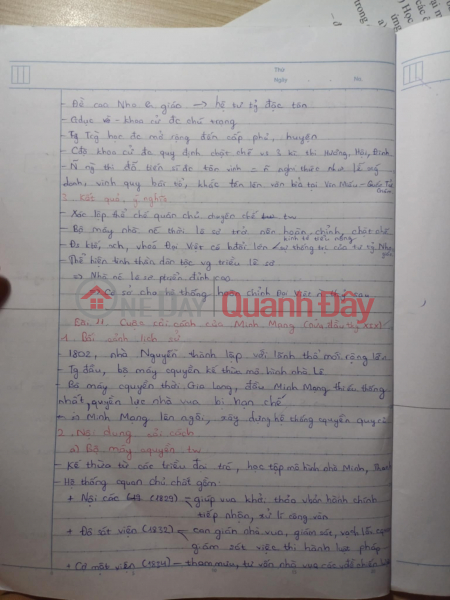 Thứ
Ngày No.
- Đề cao Nho giáo → hệ tư tg độc tôn
- Gdục - khoa cử đc chú trọng
- Tg Tcg học đc mở rộng đến cấp phủ, huyện
- Cđộ khoa cử đc quy định chặt chẽ vs 3 kì thi Hương, Hội, Đình
- N ng thi đỗ tiến sĩ đc tôn vinh = n nghi thức như lễ xướng
danh, vinh quy bái tổ, khắc tên lên văn bia tại Văn Miếu - Quốc Tử
Giám
3. Kết quả, ý nghĩa
- Xác lập thể chế quân chủ chuyên chế tw
- Bộ máy nhà nc thời Lê sơ trở nên hoàn chỉnh, chặt chẽ
kinh tế tiểu nông
- Đs ktế, xh, vhoá Đại Việt có bđổi lớn sự thống trị của tư tg Nho
giáo
- Thể hiện tinh thần dân tộc vg triều lê sơ
⇒ Nhà nc Lê sơ phát triển đỉnh cao
Cơ sở cho hệ thống hành chính Đại Việt
ONE DAY Quanh Đây
Bài 11. Cuộc cải cách của Minh Mạng (nửa đầu tk XIX)
1. Bối cảnh lịch sử
- 1802, nhà Nguyễn thành lập với lãnh thổ mở rộng lớn
- Tg đầu, bộ máy cquyền kế thừa mô hình nhà Lê
- Bộ máy cquyền thời Gia Long, đầu Minh Mạng thiếu thống
nhất, quyền lực nhà vua bị hạn chế
- Minh Mạng lên ngôi, xây dựng hệ thống cquyền quy củ
2. Nội dung cải cách
a) Bộ máy cquyền tw
- Kế thừa từ các triều đại trc, học tập mô hình nhà Minh, Thanh
- Hệ thống cquan chủ chốt gồm:
+ Nội các (1829) giúp vua khởi thảo vbản hành chính
tiếp nhận, xử lí công văn
+ Đô sát viện (1832) can gián nhà vua, giám sát,
giám sát việc thi hành luật pháp
+ Cơ mật viện (1834) - tham mưu, tư vấn nhà vua